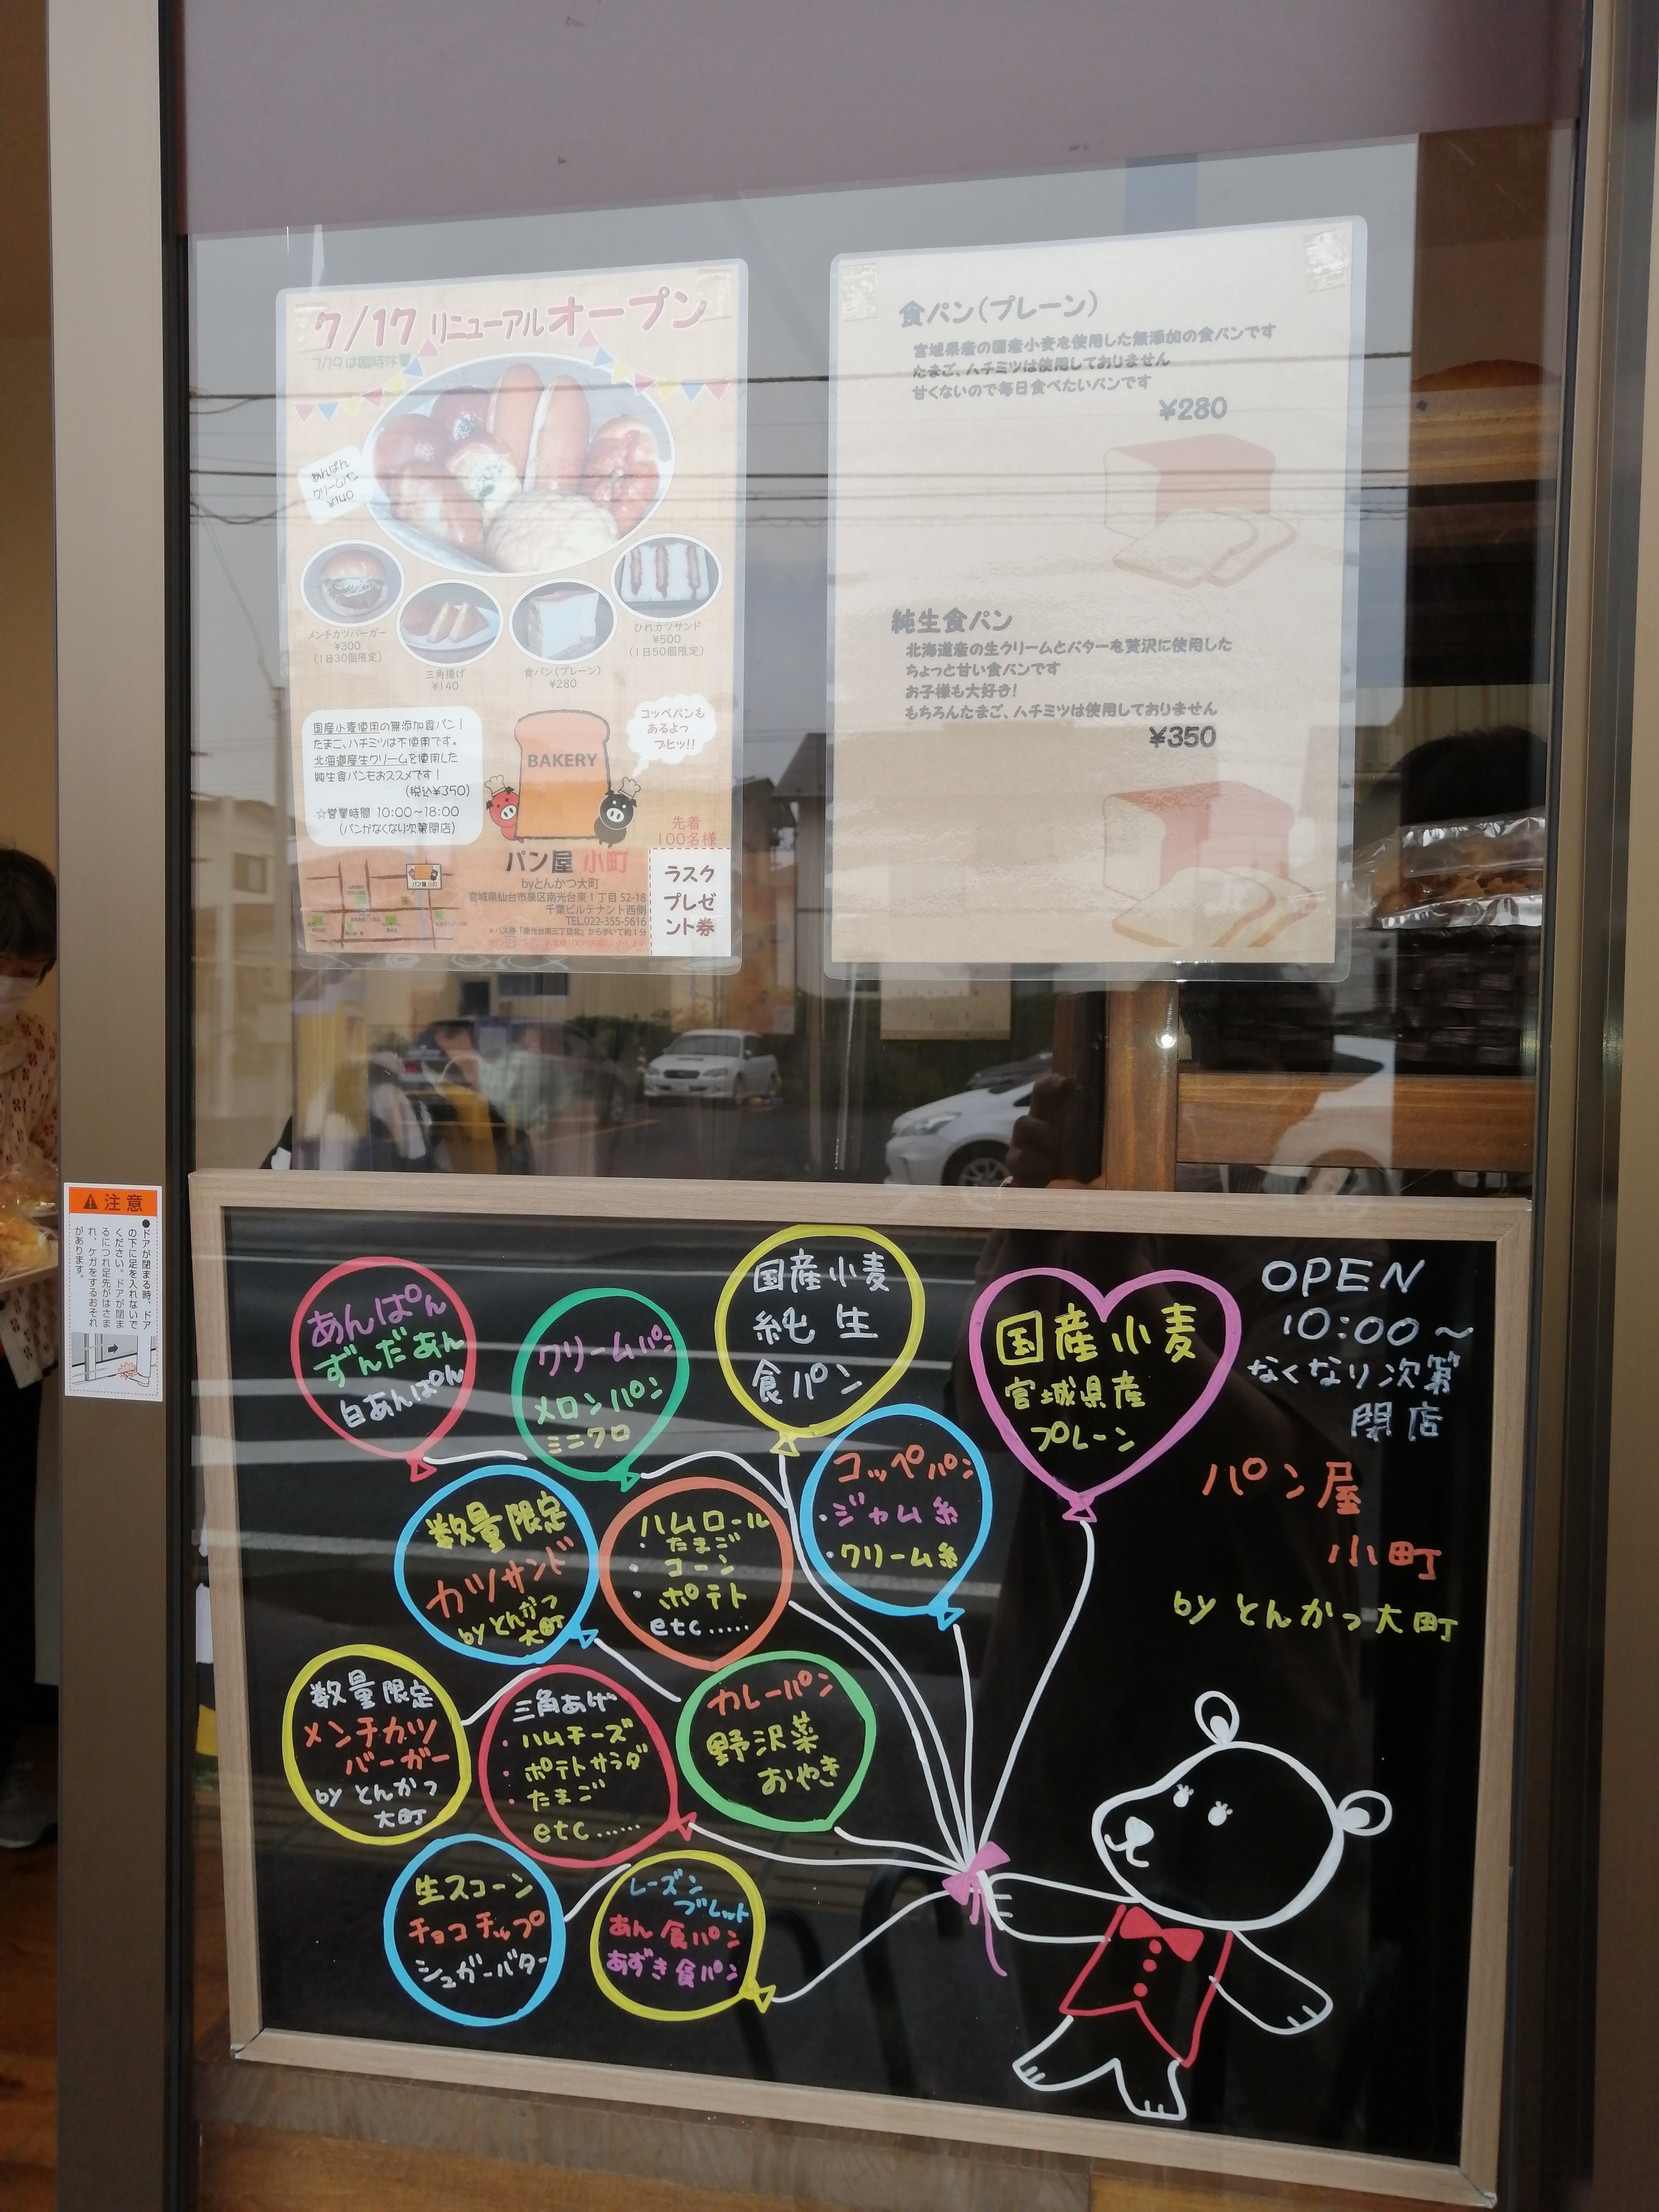 7/17 リニューアルオープン
7/19は臨時休業
あんぱん
クリームパン
¥140
メンチカツバーガー
¥300
(1日30個限定)
三角揚げ
¥140
食パン(プレーン)
¥280
ひれカツサンド
¥500
(1日50個限定)
国産小麦使用の無添加食パン!
たまご、ハチミツは不使用です。
北海道産生クリームを使用した
純生食パンもおススメです!
(税込¥350)
☆営業時間 10:00~18:00
(パンがなくなり次第閉店)
コッペパンも
あるよっ
ブヒッ!!
BAKERY
パン屋 小町
byとんかつ大町
宮城県仙台市泉区南光台東1丁目52-18
千葉ビルテナント西側
TEL.022-355-5616
*バス停「南光台南三丁目北」から歩いて約1分
先着
100名様
ラスク
プレゼ
ント券
食パン(プレーン)
宮城県産の国産小麦を使用した無添加の食パンです
たまご、ハチミツは使用しておりません
甘くないので毎日食べたいパンです
¥280
純生食パン
北海道産の生クリームとバターを贅沢に使用した
ちょっと甘い食パンです
お子様も大好き!
もちろんたまご、ハチミツは使用しておりません
¥350
注意
●ドアが閉まる時、ドア
の下に足を入れないで
ください。ドアが閉ま
るにつれ足先がはさま
れ、ケガをするおそれ
があります。
あんぱん
ずんだあん
白あんぱん
クリームパン
メロンパン
ミニクロ
国産小麦
純生
食パン
国産小麦
宮城県産
プレーン
OPEN
10:00~
なくなり次第
閉店
パン屋
小町
by とんかつ大町
数量限定
カツサンド
by とんかつ
大町
ハムロール
・たまご
・コーン
・ポテト
etc……
コッペパン
・ジャム系
・クリーム系
数量限定
メンチカツ
バーガー
by とんかつ
大町
三角あげ
・ハムチーズ
・ポテトサラダ
・たまご
etc……
カレーパン
野沢菜
おやき
生スコーン
チョコチップ
シュガーバター
レーズン
ブレット
あん食パン
あずき食パン